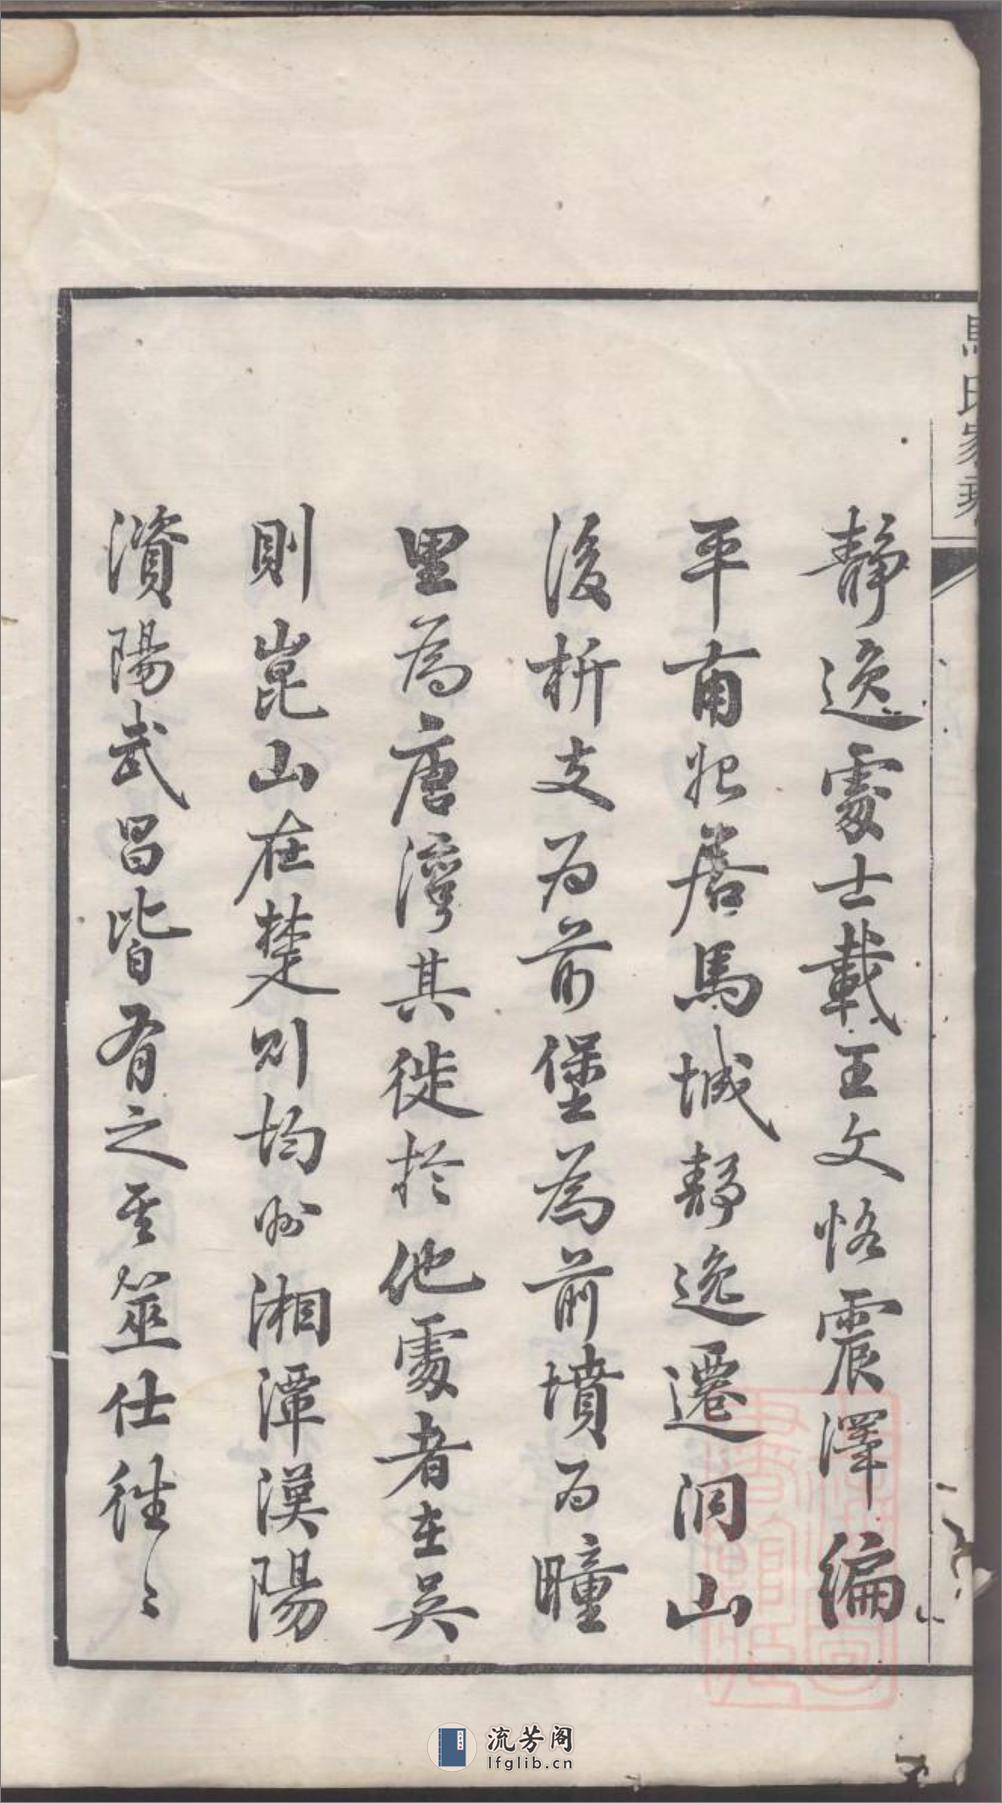 馬氏家乘
靜逸處士載王文恪震澤編
平甫始居馬城靜逸遷洞山
後析支为前堡為前墳为疃
里為唐灣其徙於他處者在吳
則崑山在楚則均州湘潭漢陽
濱陽武昌皆有之至筮仕往〻
流芳阁
lfglib.cn